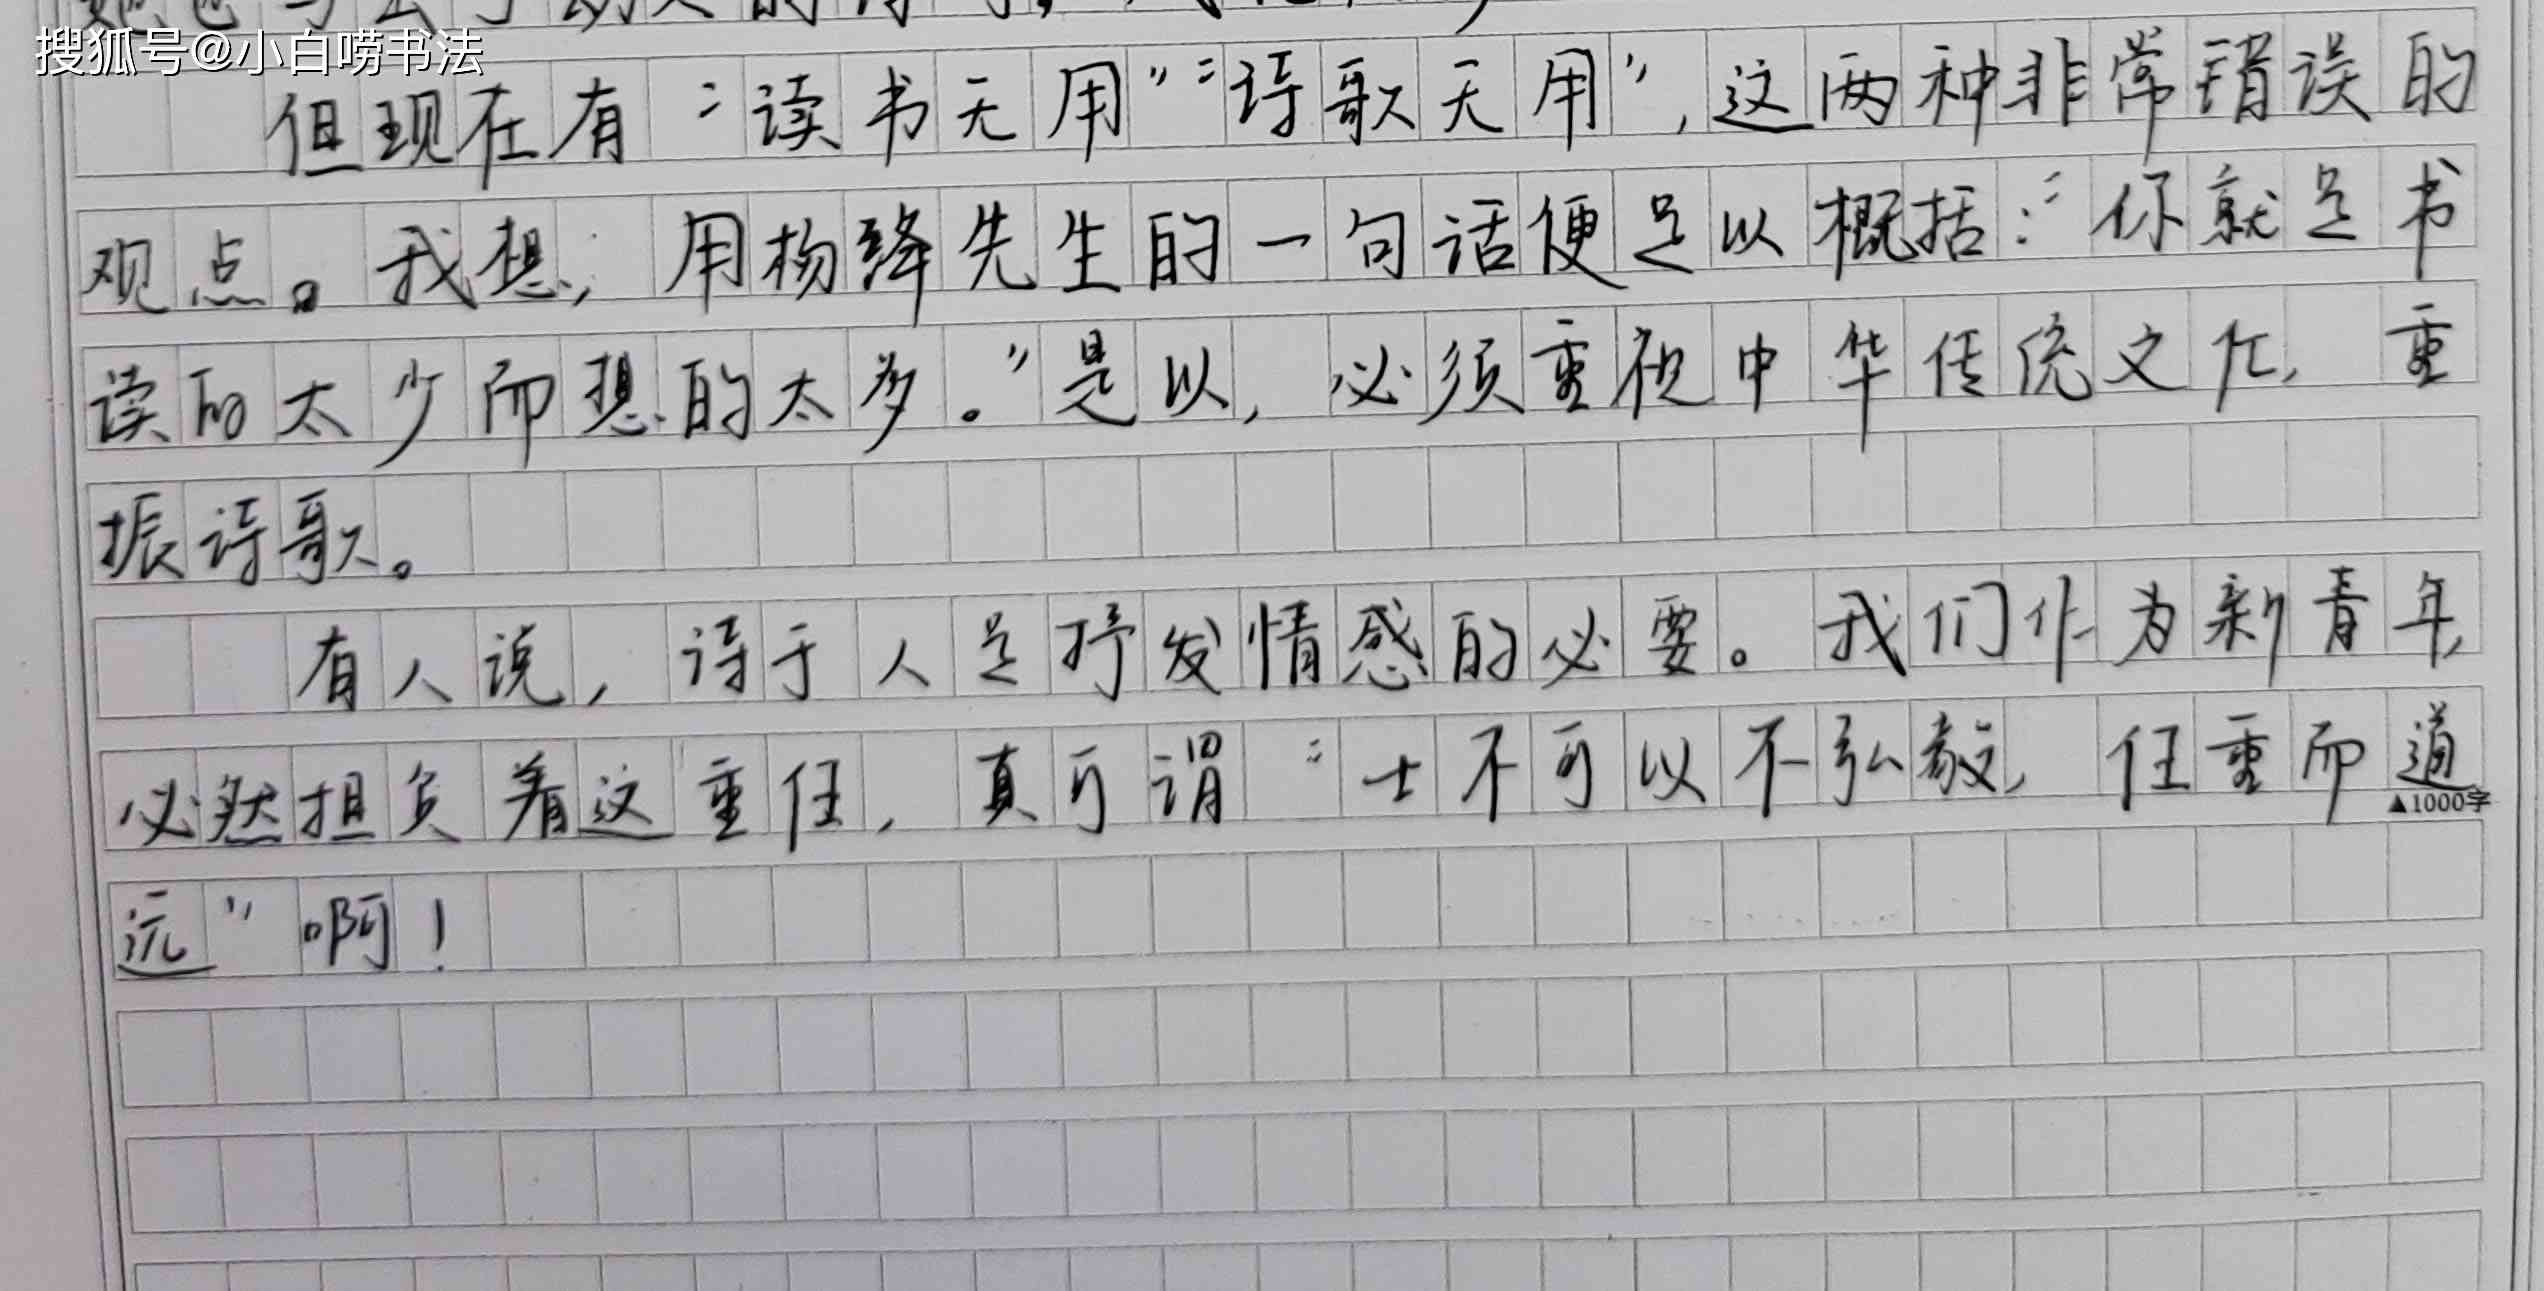 搜狐号@小白唠书法
但现在有“读书无用”“诗歌无用”,这两种非常错误的
观点。我想,用杨绛先生的一句话便足以概括:“你就是书
读的太少而想的太多。”是以,必须重视中华传统文化,重
振诗歌。
有人说,诗于人是抒发情感的必要。我们作为新青年,
必然担负着这重任,真可谓“士不可以不弘毅,任重而道
▲1000字
远”啊!